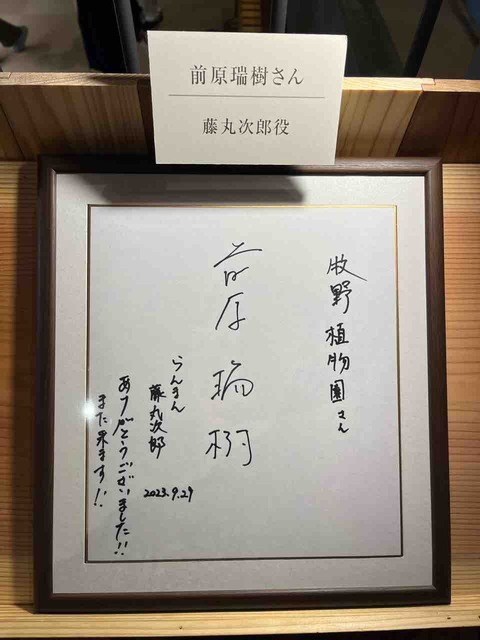 前原瑞樹さん
藤丸次郎役
牧野植物園さん
前原瑞樹
らんまん
藤丸次郎
2023.9.29
ありがとうございました!!
また来ます!!